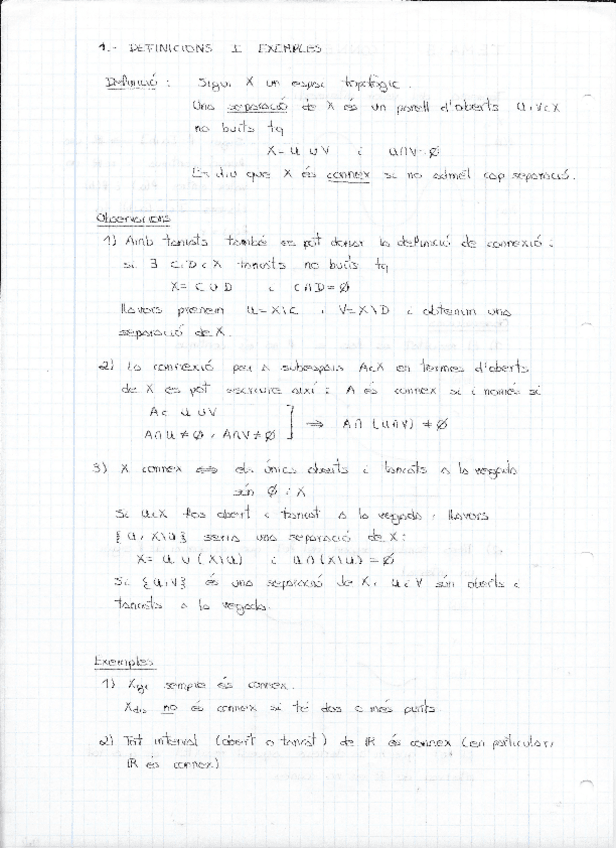 1.- DEFINICIONS I EXEMPLES
Definició : Sigui X un espai topològic.
Una separació de X és un parell d'oberts U,V⊂X
no buits tq
X=U∪V i U∩V=∅
Es diu que X és connex si no admet cap separació.
Observacions
1) Amb tancats també es pot donar la definició de connexió:
si ∃ C,D⊂X tancats no buits tq
X= C∪D i C∩D=∅
llavors prenem U=X\C i V=X\D i obtenim una
separació de X.
2) La connexió per a subespais A⊂X en termes d'oberts
de X es pot escriure així: A és connex si i només si
A⊂ U∪V
A∩U≠∅, A∩V≠∅ ] ⟹ A∩(U∩V) ≠∅
3) X connex ⟺ els únics oberts i tancats a la vegada
són ∅ i X
Si U⊂X fos obert i tancat a la vegada, llavors
{U, X\U} seria una separació de X:
X= U∪(X\U) i U∩(X\U)=∅
Si {U,V} és una separació de X, U i V són oberts i
tancats a la vegada.
Exemples
1) X sempre és connex.
Xdis no és connex si té dos o més punts
2) Tot interval (obert o tancat) de ℝ és connex (en particular,
ℝ és connex)